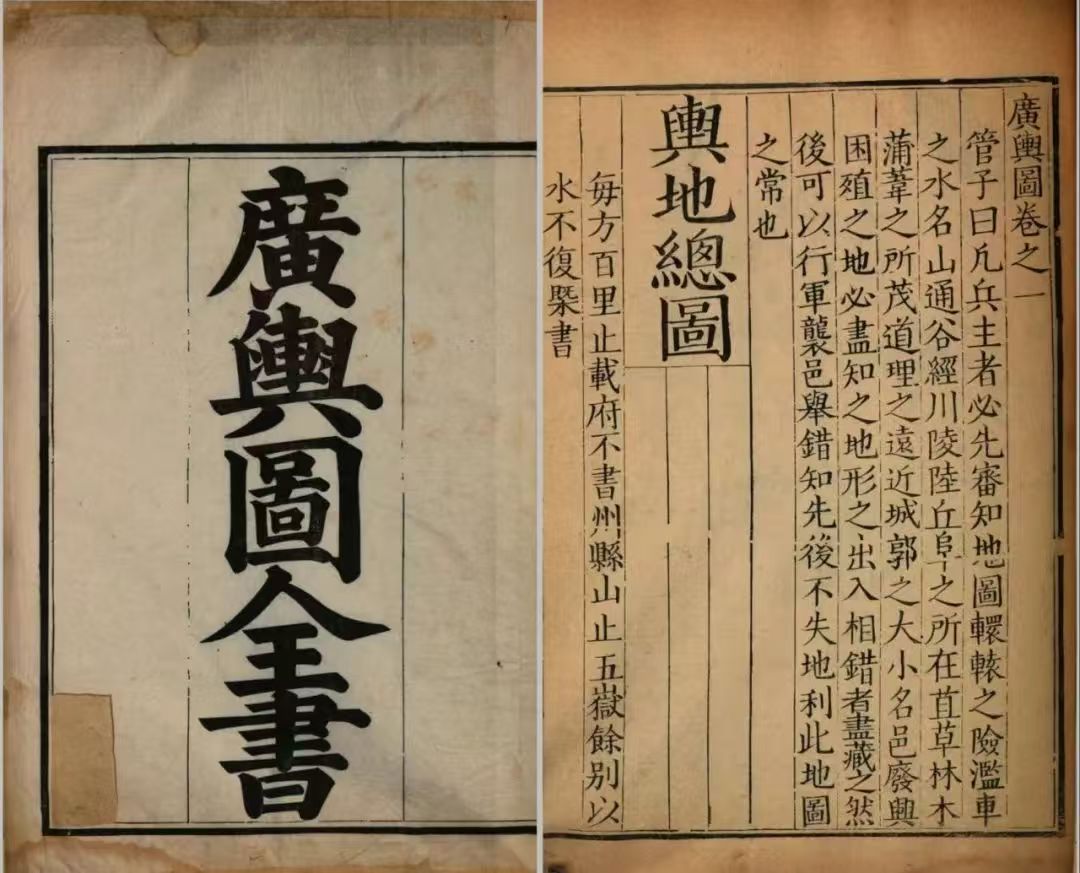 廣輿圖全書
廣輿圖卷之一
管子曰凡兵主者必先審知地圖轘轅之險濫車
之水名山通谷經川陵陸丘阜之所在苴草林木
蒲葦之所茂道理之遠近城郭之大小名邑廢興
困殖之地必盡知之地形之出入相錯者盡藏之然
後可以行軍襲邑舉錯知先後不失地利此地圖
之常也
輿地總圖
每方百里止載府不書州縣山止五嶽餘别以
水不復槩書